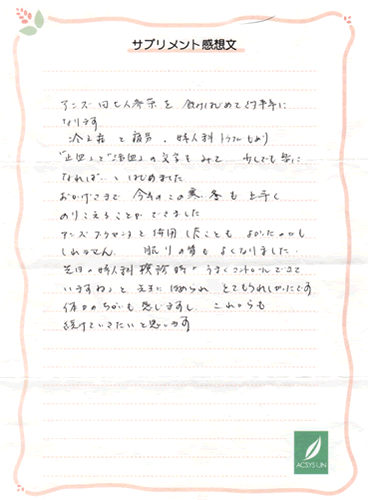 サプリメント感想文
アンズ田七人参茶を飲みはじめて2年半に
なります
冷え症と疲労、婦人科トラブルもあり
「止血」と「活血」の文字をみて、少しでも楽に
なれば…とはじめました
おかげさまで 今年のこの寒い冬も上手く
のりこえることができました
アンズプラセンタと併用したことも よかったのかも
しれません。 眠りの質もよくなりました。
先日の婦人科検診時「うまくコントロールできて
いますね」と 先生にほめられ とてもうれしかったです
体力のちがいも感じますし、これからも
続けていきたいと思います
ACSYS UN